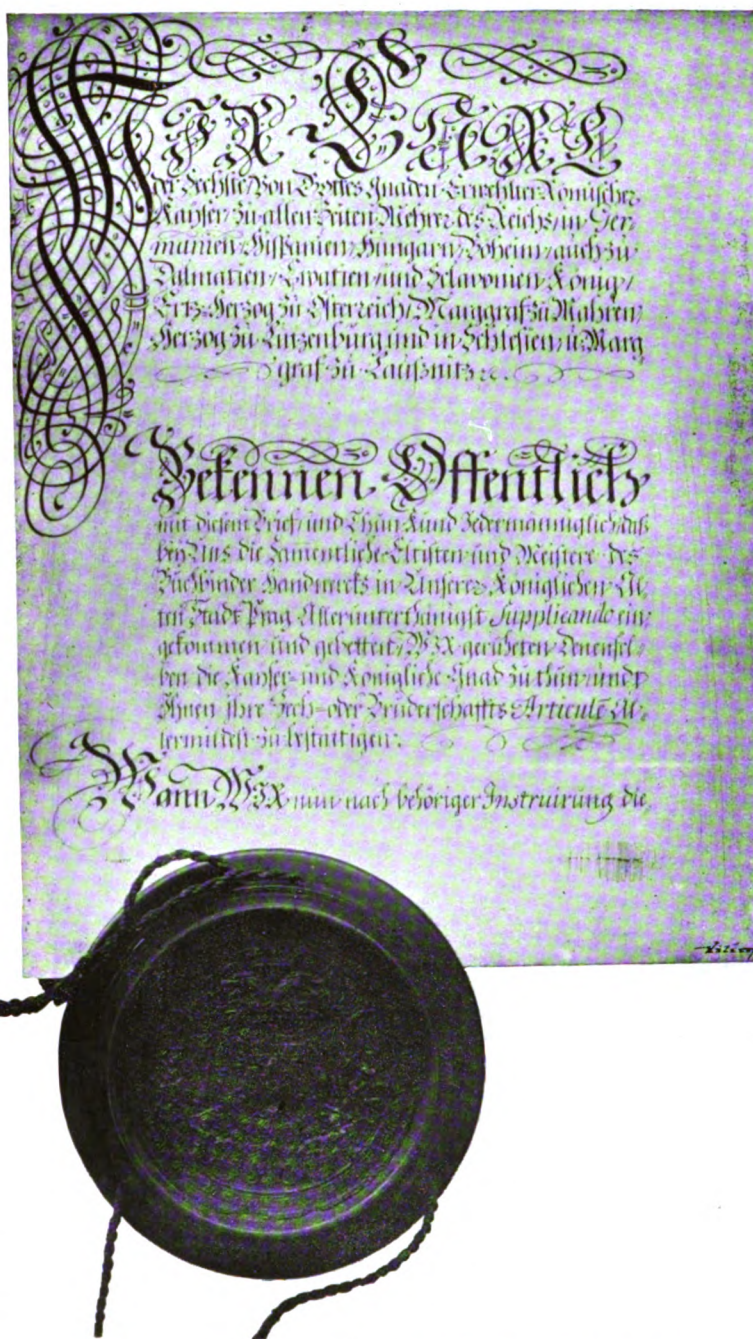 WIR CARL
der Sechste, Von Gottes Gnaden Erwehlter Römischer
Kayser, zu allen Zeiten Mehrer des Reichs, in Ger,
manien, Hispanien, Hungarn, Böheim, auch zu
Dalmatien, Croatien, und Sclavonien König,
Ertz-Herzog zu Österreich, Marggraf zu Mähren,
Herzog zu Lützenburg und in Schlesien, u: Marg
graf zu Laußnitz ꝛc.
Bekennen Öffentlich
mit diesem Brief, und Thun Kund Jedermänniglich, daß
bey Uns die Samentliche Eltisten und Meistere des
Buchbinder Handwercks in Unserer Königlichen Al,
ten Stadt Prag Allerunterthänigst Supplicando ein,
gekommen und gebetten, WIR geruheten Denensel,
ben die Kayser- und Königliche Gnad zu thun, undt
Ihnen Ihre Zech- oder Bruderschaffts Articule Al,
lermildest zu bestättigen.
Wann WIR nun nach behöriger Instruirung die,